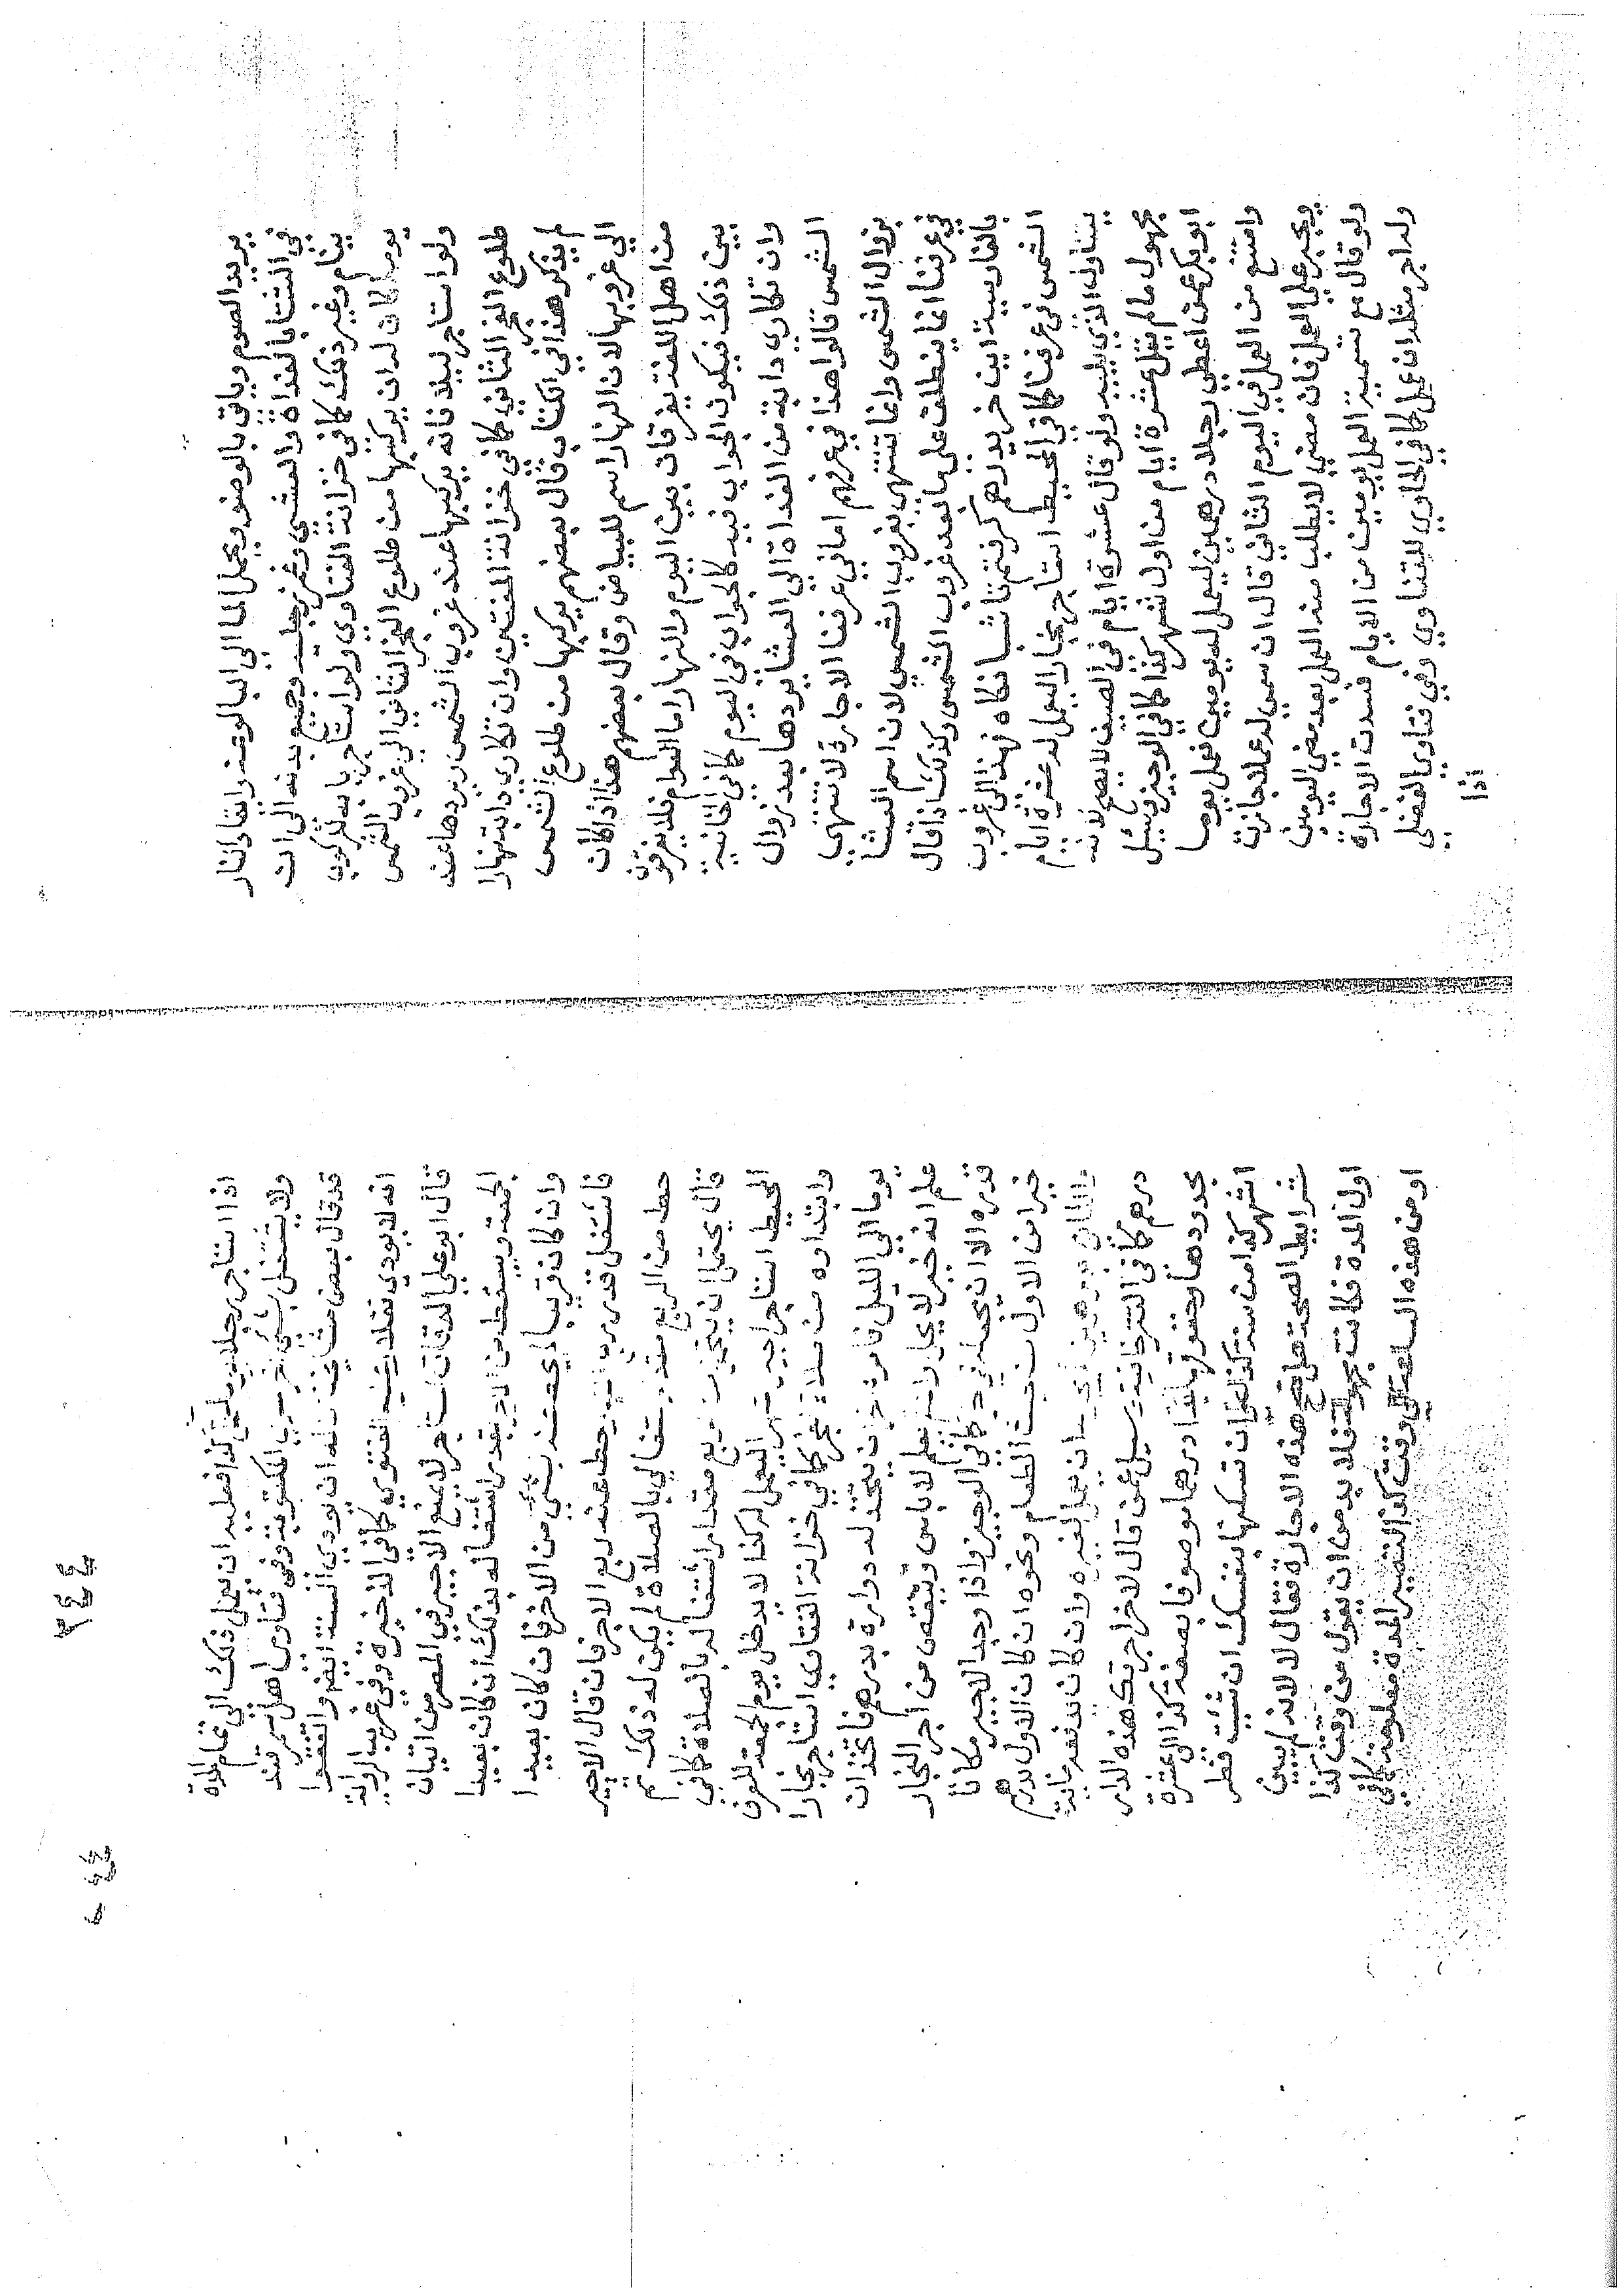 يريد الصوم وياتي بالوضوء ويحمل الماء الى البالوعة وايقاد النار
في الشتا بالغداة والعشي وغمز رجليه وجميع بدنه الى ان
ينام وغير ذلك كما في خزانة الفتاوي ولو استاجر دابة للركوب
يوما كان له ان يركبها من طلوع الفجر الثاني الى غروب الشمس
ولو استاجر ليلا فانه يركبها عند غروب الشمس ويردها عند
طلوع الفجر الثاني كما في خزانة المفتيين وان تكارى دابة نهارا
لم يذكر هذا في الكتاب قال بعضهم يركبها من طلوع الشمس
الى غروبها لان النهار اسم للبياض وقال بعضهم هذا اذا كان
من اهل اللغة يفرقان بين اليوم والنهار اما العوام فلا يفرقون
بين ذلك فيكون الجواب فيه كالجواب في اليوم كما في الخانية
وان تكارى دابة من الغداة الى العشا يردها بعد زوال
الشمس قالوا هذا في عرفهم اما في عرفنا الاجارة لا تنتهي
بزوال الشمس وانما تنتهي بغروب الشمس لان اسم العشا
في عرفنا انما ينطلق على ما بعد غروب الشمس وكذلك اذا قال
بالفارسية اين خر بيد رهم كرفتم تا شبانكاه فهذا الى غروب
الشمس في عرفنا كما في المحيط استاجر نجارا ليعمل له عشرة ايام
يتناول الذي يليه ولو قال عشرة ايام في الصيف لا يصح لانه
مجهول مالم يقل عشرة ايام من اول شهر كذا كما في الوجيز وسئل
ابو بكر عمن اعطي رجلا درهمين ليعمل له يومين فعمل يوما
وامتنع من العمل في اليوم الثاني قال ان سمي له عملا جازت
ويجبر على العمل فان مضي لا يطلب منه العمل بعد مضي اليومين
ولو قال مع تسمية العمل يومين من الايام فسدت الاجارة
وله اجر مثله ان عمل كما في الحاوي للفتاوي وفي فتاوي الفضلي
اذا
٣٤٤
اذا استاجر رجلا يوما ليعمل كذا فعليه ان يعمل ذلك الى تمام المدة
ولا يشتغل بشيء اخر سوي المكتوبة وفي فتاوي اهل سمرقند
قد قال بعض مشايخنا له ان يودي السنة ايضا واتفقوا
انه لا يودي نفلا وعليه الفتوي كما في الذخيرة وفي غريب الرواية
قال ابو علي الدقاق المستاجر لا يمنع الاجير في المصر من اتيان
الجمعة ويسقط من الاجر بقدر اشتغاله بذلك ان كان بعيدا
وان كان قريبا لم يحط عنه شيء من الاجر فان كان بعيدا
فاشتغل قدر ربع اليوم حط عنه ربع الاجر فان قال الاجير
حط من الربع مقدار اشتغالي بالصلاة لم يكن له ذلك ثم
قال يحتمل ان يتحمل من الربع مقدار اشتغاله بالصلاة كما في
المحيط استاجر اجيرا شهرا ليعمل له كذا لا يدخل يوم الجمعة للعرف
وابتداوه من صلاة الفجر كما في خزانة الفتاوي استاجر نجارا
يوما الى الليل فامره اخر ان يتخذ له دوارة بدرهم فاتخذ ان
علم انه اجير لا يحل وان لم يعلم لا باس وينقص من اجر النجار
قدره الا ان يجعله في حل كما في الوجيز واذا وجد الاجير مكانا
خيرا من الاول من حيث الطعام ونحوه ان كان الاول بدرهم
درهم كما في التترخانية وسيل عمن قال لاخر اجرتك هذه الدار
بحدودها وحقوقها بكذا درهما موصوفا بصفة كذا الى عشرة
اشهر كذا من سنة كذا على ان تسكنها بنفسك ان شيت فطر
شرايط الصحة هل تصح هذه الاجارة فقال لا لانه لم يبين
اول المدة فكانت مجهولة فلا بد من ان يقول من وقت كذا
او من هذه الساعة الى وقت كذا لتصير المدة معلومة كما في